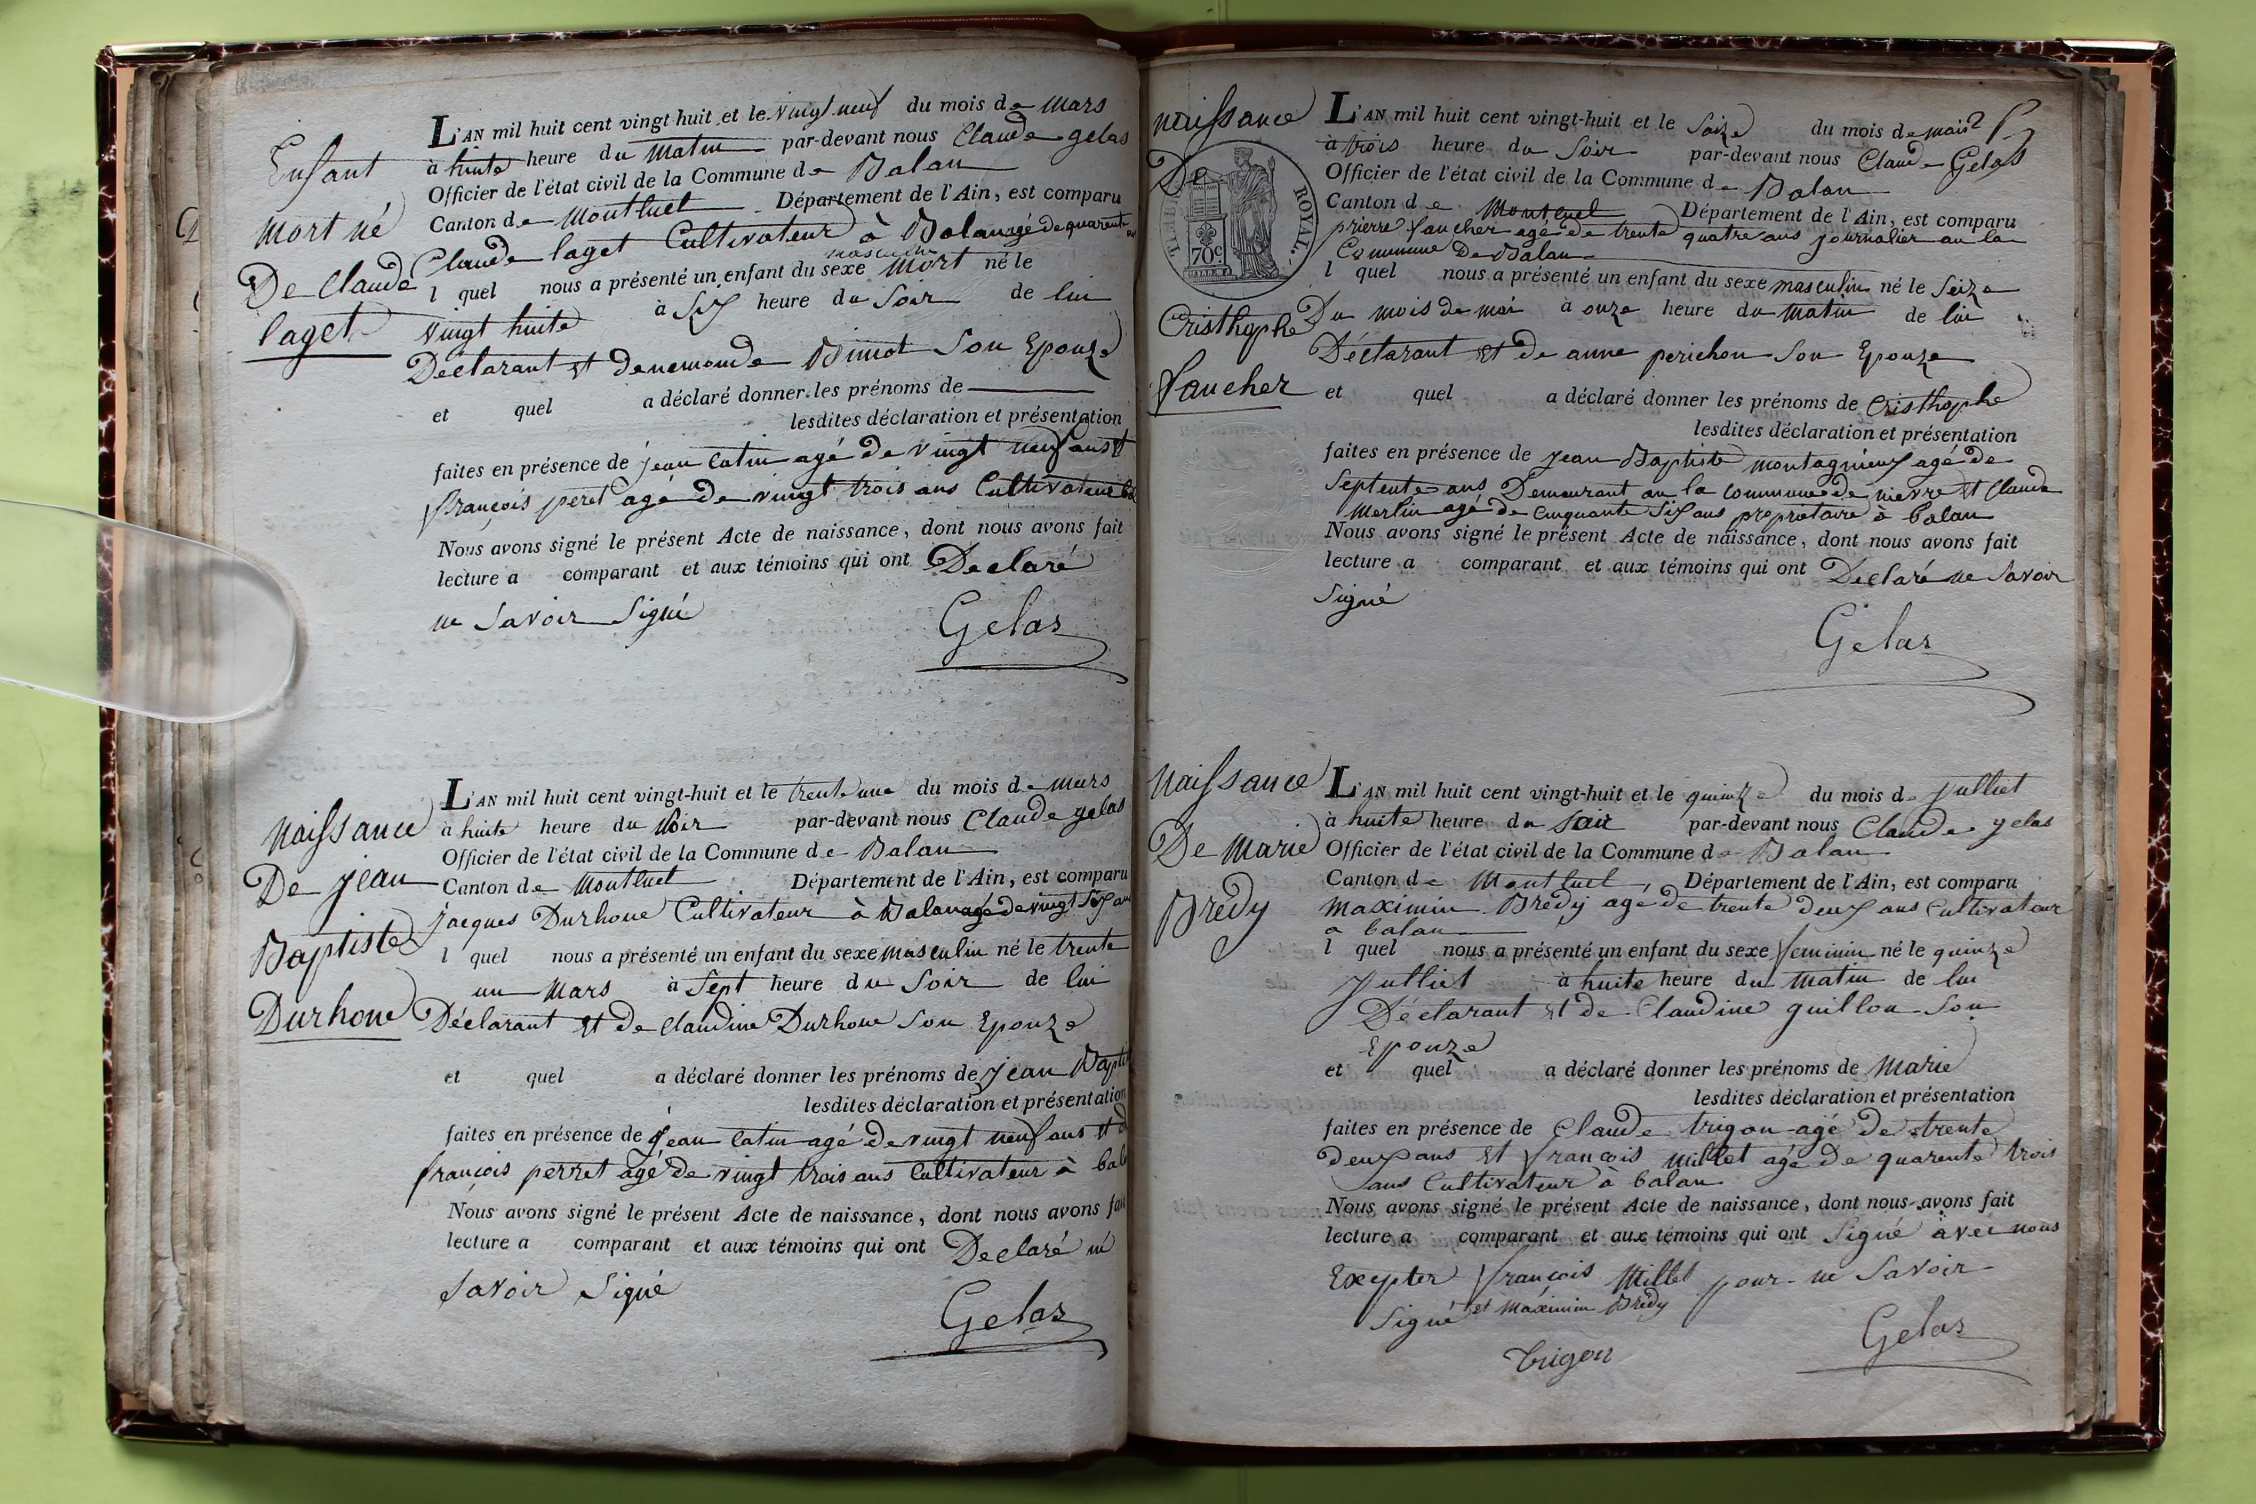 Enfant
mort né
De Claude
laget
L'AN mil huit cent vingt-huit et le vingt neuf du mois de mars
à huite heure du matin par-devant nous Claude gelas
Officier de l'état civil de la Commune de Balan
Canton de Montluel Département de l'Ain, est comparu
Claude laget Cultivateur à Balan agé de quarente
l quel nous a présenté un enfant du sexe masculin mort né le
vingt huite à Six heure du Soir de lui
Déclarant et Benemonde Binot Son Epouze
et quel a déclaré donner les prénoms de
lesdites déclaration et présentation
faites en présence de jean Catin agé de vingt neuf ans et
françois peret agé de vingt trois ans Cultivateur
Nous avons signé le présent Acte de naissance, dont nous avons fait
lecture a comparant et aux témoins qui ont Declaré
ne Savoir Signé
Gelas
Naissance
De jean
Baptiste
Durhone
L'AN mil huit cent vingt-huit et le trente une du mois de mars
à huite heure du Soir par-devant nous Claude gelas
Officier de l'état civil de la Commune de Balan
Canton de Montluel Département de l'Ain, est comparu
jacques Durhone Cultivateur à Balan agé de vingt Six ans
l quel nous a présenté un enfant du sexe masculin né le trente
un mars à Sept heure du Soir de lui
Déclarant et de Claudine Durhone Son Epouze
et quel a déclaré donner les prénoms de jean Bapti
lesdites déclaration et présentation
faites en présence de jean Catin agé de vingt neuf ans et d
françois perret agé de vingt trois ans Cultivateur à bal
Nous avons signé le présent Acte de naissance, dont nous avons fait
lecture a comparant et aux témoins qui ont Declaré né
Savoir Signé
Gelas
naissance
De
TIMBRE ROYAL.
70c.
Cristhophe
faucher
L'AN mil huit cent vingt-huit et le Saize du mois de mai
à trois heure du Soir par-devant nous Claude Gelas
Officier de l'état civil de la Commune de Balan
Canton de Montluel Département de l'Ain, est comparu
prierre faucher agé de trente quatre ans journalier au la
Commune De Balan
l quel nous a présenté un enfant du sexe masculin né le Seize
Du mois de mai à onze heure du matin de lui
Déclarant et de anne perichon Son Epouze
et quel a déclaré donner les prénoms de Cristhophe
lesdites déclaration et présentation
faites en présence de jean Baptiste montagnieux agé de
Septente ans Demeurant au la commune de nievre et Claude
Merlin agé de Cinquante Six ans propriataire à balan
Nous avons signé le présent Acte de naissance, dont nous avons fait
lecture a comparant et aux témoins qui ont Declaré ne Savoir
Signé
Gelas
Naissance
De Marie
Brédy
L'AN mil huit cent vingt-huit et le quinze du mois de julliet
à huite heure du Soir par-devant nous Claude gelas
Officier de l'état civil de la Commune de Balan
Canton de Montluel, Département de l'Ain, est comparu
Maximin Brédy agé de trente deux ans Cultivateur
a balan
l quel nous a présenté un enfant du sexe feminin né le quinze
julliet à huite heure du matin de lui
Déclarant et de Claudine guillon Son
Epouze
et quel a déclaré donner les prénoms de Marie
lesdites déclaration et présentation
faites en présence de Claude trigon agé de trente
deux ans et françois millet agé de quarente trois
ans Cultivateur à balan
Nous avons signé le présent Acte de naissance, dont nous avons fait
lecture a comparant et aux témoins qui ont Signé avec nous
Excepter françois Millet pour ne Savoir
Signé et Maximin Brédy
Gelas
trigon